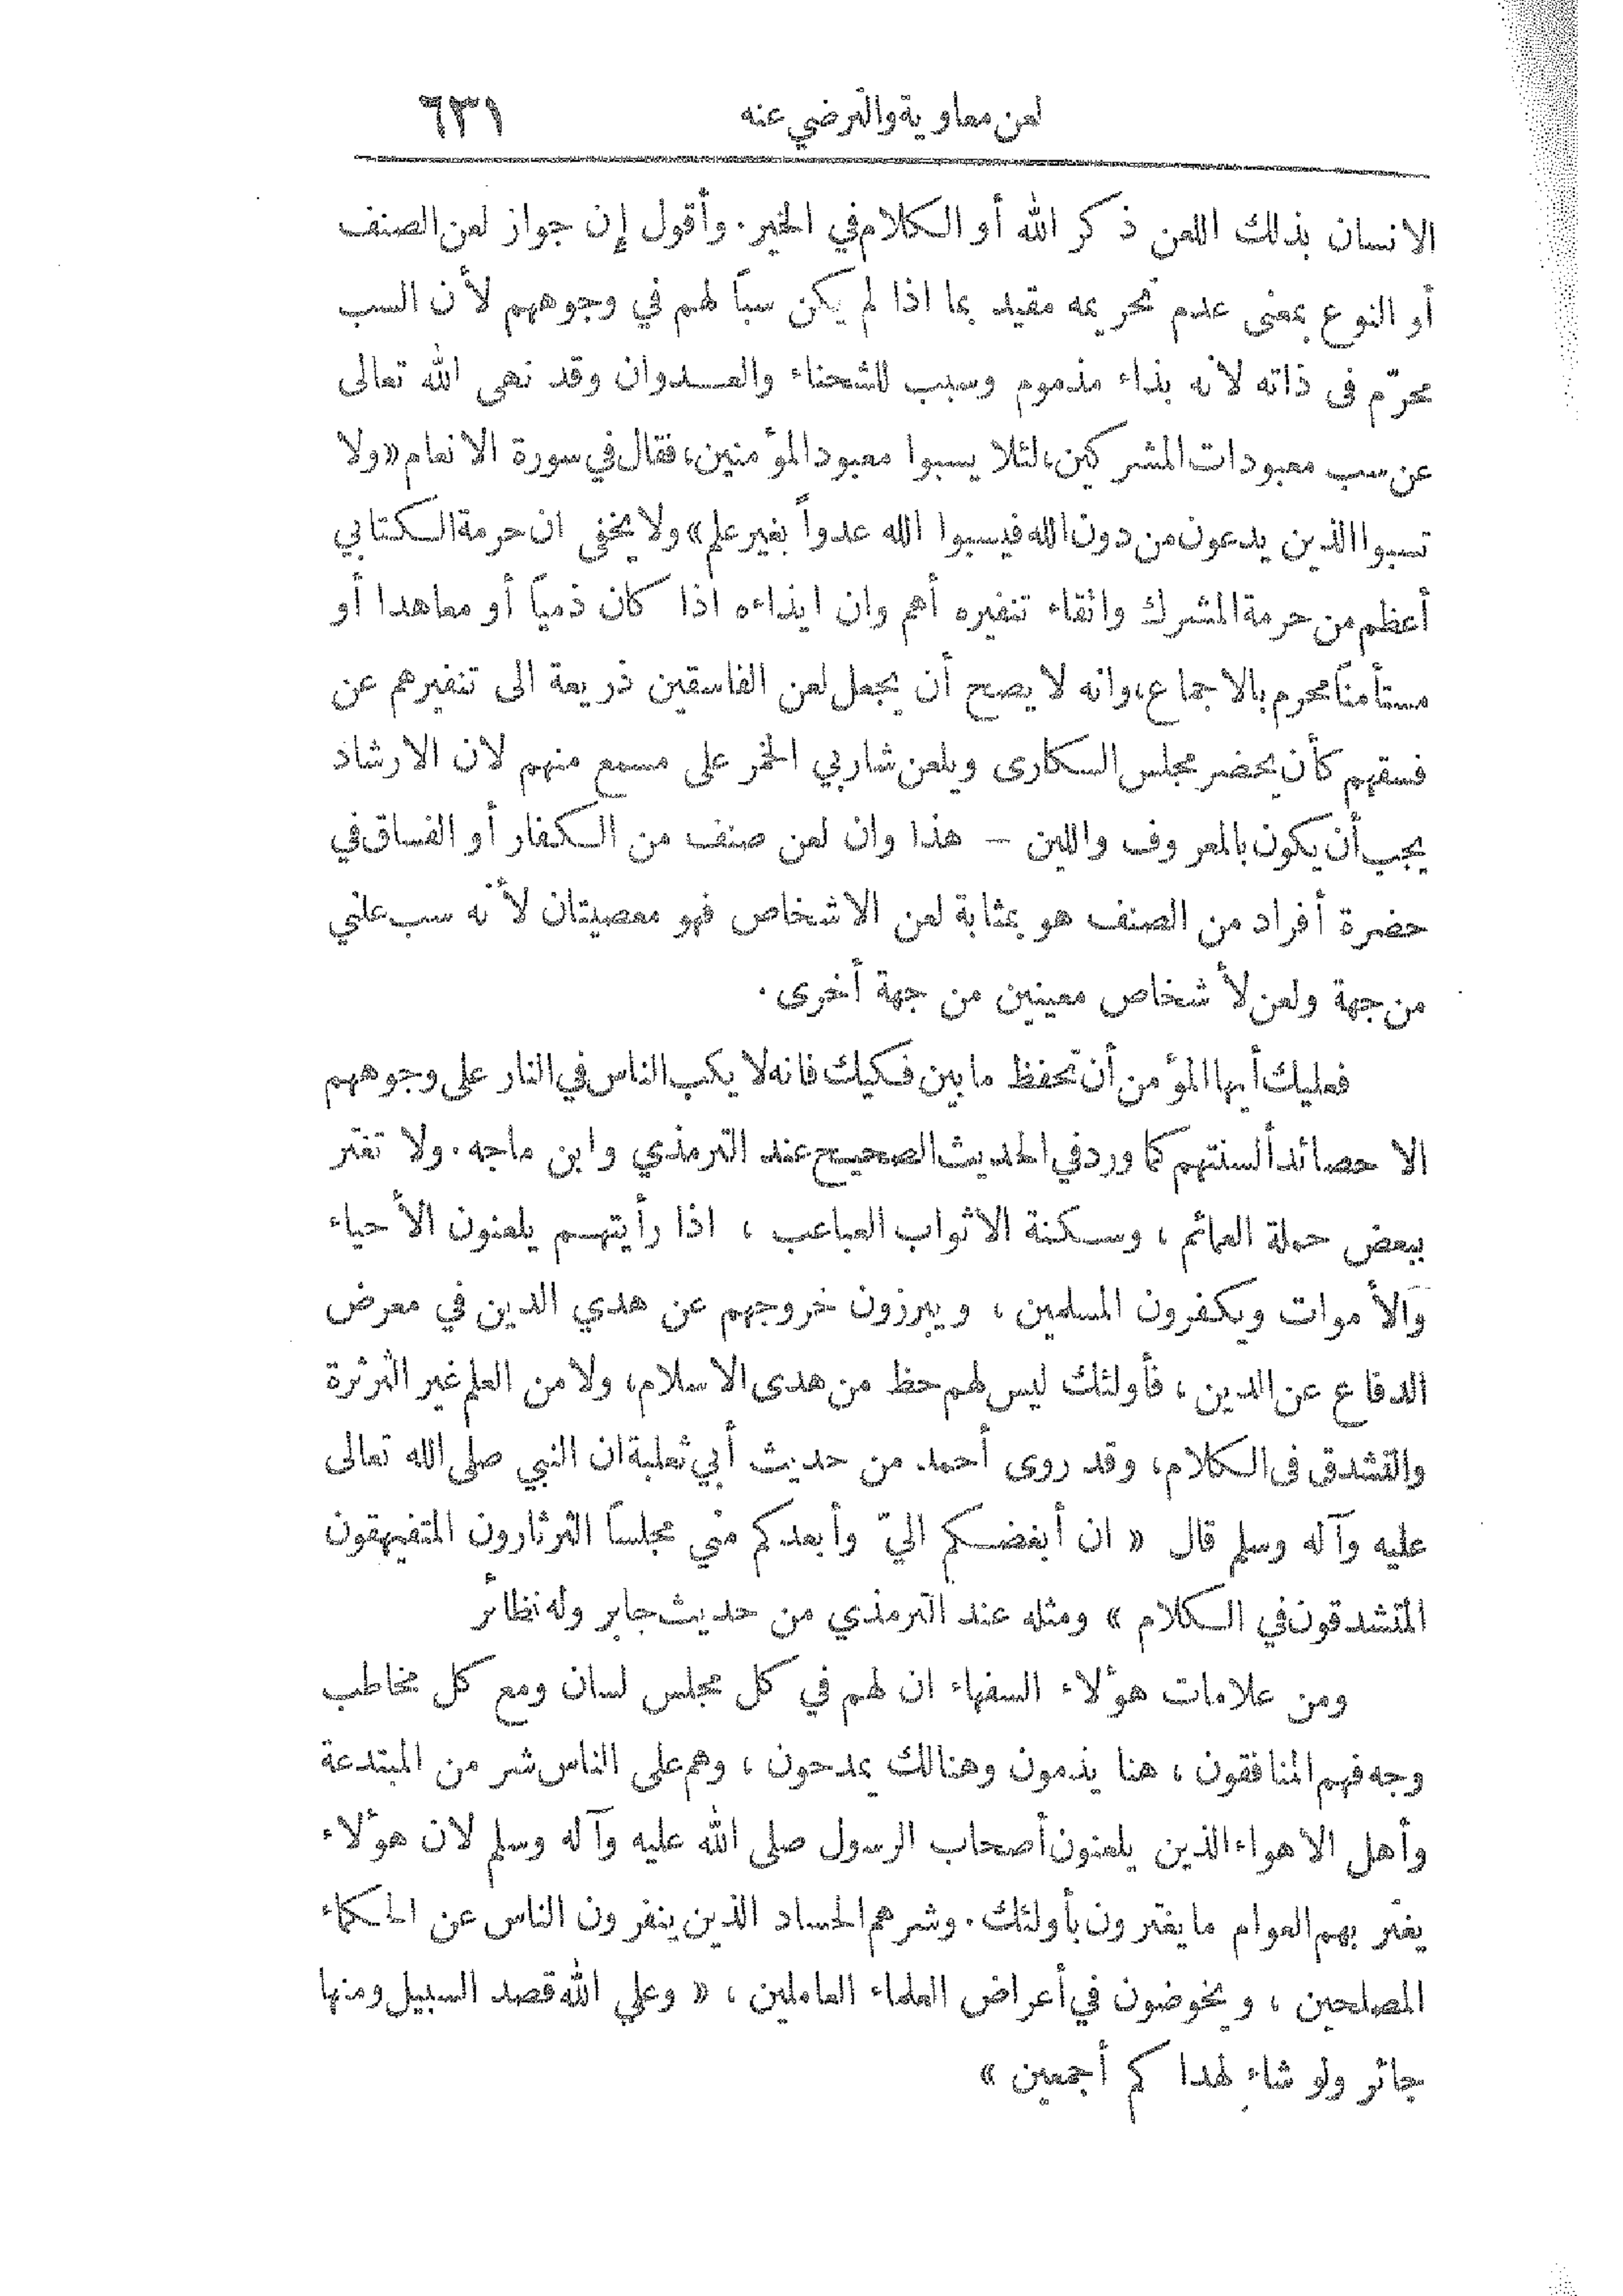 لعن معاوية والترضي عنه ٦٣١
الانسان بذلك اللعن ذكر الله أو الكلام في الخير. وأقول إن جواز لعن الصنف
أو النوع بمعنى عدم تحريمه مقيد بما اذا لم يكن سباً لهم في وجوههم لأن السب
محرّم فى ذاته لانه بذاء مذموم وسبب للشحناء والعدوان وقد نهى الله تعالى
عن سب معبودات المشركين، لئلا يسبوا معبود المؤمنين، فقال في سورة الانعام «ولا
تسبوا الذين يدعون من دون الله فيسبوا الله عدواً بغير علم» ولا يخفى ان حرمة الكتابي
أعظم من حرمة المشرك واتقاء تنفيره أهم وان ايذاءه اذا كان ذمياً أو معاهدا أو
مستأمناً محرم بالاجماع، وانه لا يصح أن يجعل لعن الفاسقين ذريعة الى تنفيرهم عن
فسقهم كأن يحضر مجلس السكارى ويلعن شاربي الخمر على مسمع منهم لان الارشاد
يجب أن يكون بالمعروف واللين – هذا وان لعن صنف من الكفار أو الفساق في
حضرة أفراد من الصنف هو بمثابة لعن الاشخاص فهو معصيتان لأنه سب علني
من جهة ولعن لأشخاص معينين من جهة أخرى.
فعليك أيها المؤمن أن تحفظ ما بين فكيك فانه لا يكب الناس في النار على وجوههم
الا حصائد ألسنتهم كما ورد في الحديث الصحيح عند الترمذي وابن ماجه. ولا تغتر
ببعض حملة العمائم، وسكنة الاثواب العباعب، اذا رأيتهم يلعنون الأحياء
والأموات ويكفرون المسلمين، ويبرزون خروجهم عن هدي الدين في معرض
الدفاع عن الدين، فأولئك ليس لهم حظ من هدى الاسلام، ولا من العلم غير الثرثرة
والتشدق فى الكلام، وقد روى أحمد من حديث أبي ثعلبة ان النبي صلى الله تعالى
عليه وآله وسلم قال «ان أبغضكم اليّ وأبعدكم مني مجلساً الثرثارون المتفيهقون
المتشدقون في الكلام» ومثله عند الترمذي من حديث جابر وله نظائر
ومن علامات هؤلاء السفهاء ان لهم في كل مجلس لسان ومع كل مخاطب
وجه فهم المنافقون، هنا يذمون وهنالك يمدحون، وهم على الناس شر من المبتدعة
وأهل الاهواء الذين يلعنون أصحاب الرسول صلى الله عليه وآله وسلم لان هؤلاء
يغتر بهم العوام ما يغترون بأولئك. وشرهم الحساد الذين ينفرون الناس عن الحكماء
المصلحين، ويخوضون في أعراض العلماء العاملين، «وعلى الله قصد السبيل ومنها
جائر ولو شاء لهداكم أجمعين»